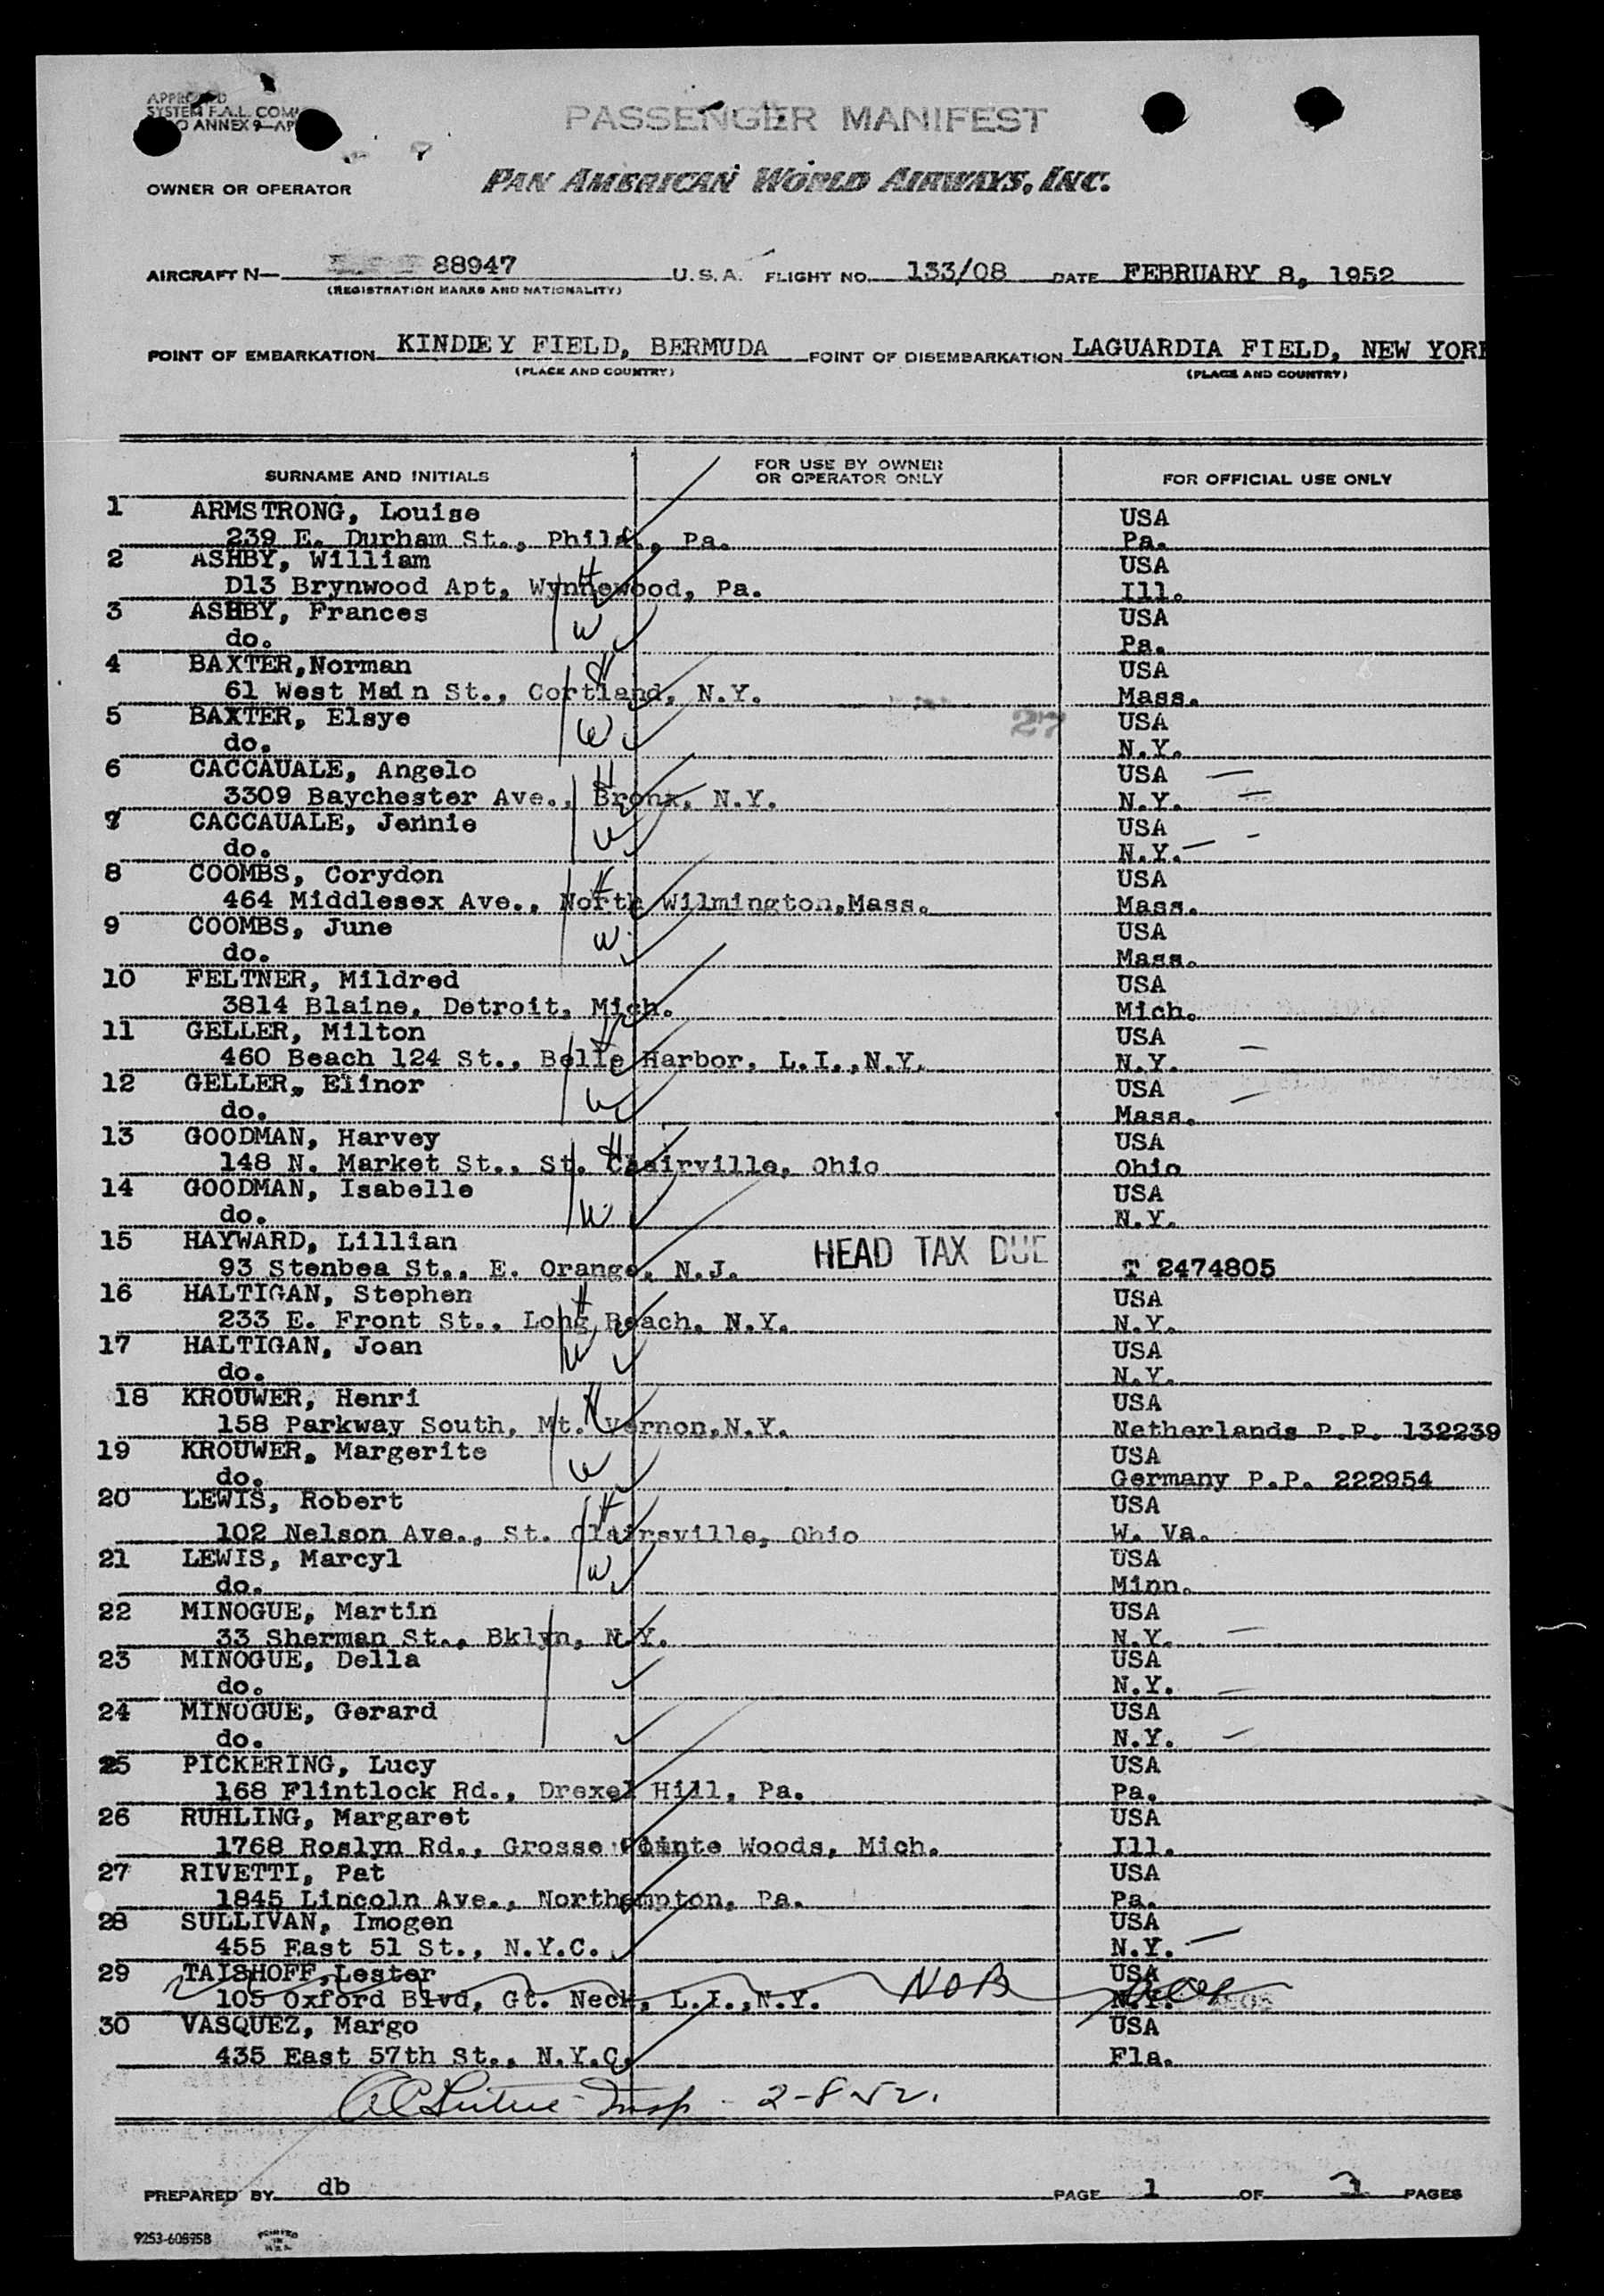 APPROVED
SYSTEM F.A.L. COM
ANNEX 9—AP
PASSENGER MANIFEST
OWNER OR OPERATOR PAN AMERICAN WORLD AIRWAYS, INC.
AIRCRAFT N— 88947 U.S.A. FLIGHT NO. 133/08 DATE FEBRUARY 8, 1952
(REGISTRATION MARKS AND NATIONALITY)
POINT OF EMBARKATION KINDLEY FIELD, BERMUDA POINT OF DISEMBARKATION LAGUARDIA FIELD, NEW YORK
(PLACE AND COUNTRY) (PLACE AND COUNTRY)
SURNAME AND INITIALS FOR USE BY OWNER OR OPERATOR ONLY FOR OFFICIAL USE ONLY
1 ARMSTRONG, Louise USA
239 E. Durham St., Phila., Pa. Pa.
2 ASHBY, William USA
D13 Brynwood Apt, Wynnewood, Pa. H Ill.
3 ASHBY, Frances USA
do. W Pa.
4 BAXTER,Norman H USA
61 West Main St., Cortland, N.Y. Mass.
5 BAXTER, Elsye 27 USA
do. W N.Y.
6 CACCAUALE, Angelo H USA
3309 Baychester Ave., Bronx, N.Y. N.Y.
7 CACCAUALE, Jennie USA
do. W N.Y.
8 COOMBS, Corydon H USA
464 Middlesex Ave., North Wilmington,Mass. Mass.
9 COOMBS, June W USA
do. Mass.
10 FELTNER, Mildred USA
3814 Blaine, Detroit, Mich. Mich.
11 GELLER, Milton H USA
460 Beach 124 St., Belle Harbor, L.I.,N.Y. N.Y.
12 GELLER, Elinor USA
do. W Mass.
13 GOODMAN, Harvey H USA
148 N. Market St., St. Clairville, Ohio Ohio
14 GOODMAN, Isabelle USA
do. W N.Y.
15 HAYWARD, Lillian HEAD TAX DUE
93 Stenbea St., E. Orange, N.J. T 2474805
16 HALTIGAN, Stephen H USA
233 E. Front St., Long Beach, N.Y. N.Y.
17 HALTIGAN, Joan W USA
do. N.Y.
18 KROUWER, Henri H USA
158 Parkway South, Mt. Vernon,N.Y. Netherlands P.P. 132239
19 KROUWER, Margerite USA
do. W Germany P.P. 222954
20 LEWIS, Robert H USA
102 Nelson Ave., St. Clairsville, Ohio W. Va.
21 LEWIS, Marcyl W USA
do. Minn.
22 MINOGUE, Martin USA
33 Sherman St., Bklyn, N.Y. N.Y.
23 MINOGUE, Della USA
do. N.Y.
24 MINOGUE, Gerard USA
do. N.Y.
25 PICKERING, Lucy USA
168 Flintlock Rd., Drexel Hill, Pa. Pa.
26 RUHLING, Margaret USA
1768 Roslyn Rd., Grosse Pointe Woods, Mich. Ill.
27 RIVETTI, Pat USA
1845 Lincoln Ave., Northampton, Pa. Pa.
28 SULLIVAN, Imogen USA
455 East 51 St., N.Y.C. N.Y.
29 TAISHOFF,Lester NOB USA
105 Oxford Blvd, Gt. Neck, L.I.,N.Y. N.Y.
30 VASQUEZ, Margo USA
435 East 57th St., N.Y.C. Fla.
Insp. 2-8-52.
PREPARED BY db PAGE 1 OF 1 PAGES
9253-608958 PRINTED
IN
U.S.A.